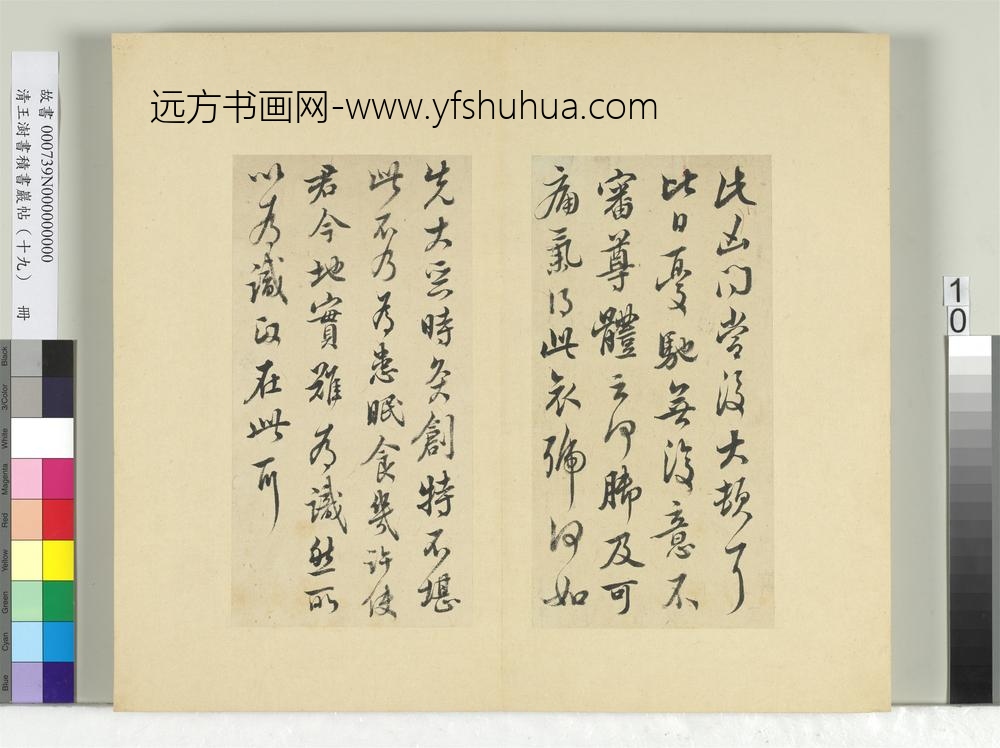 远方书画网-www.yfshuhua.com
故書 000739N000000000
清王澍書積書巖帖（十九） 冊
此凶問當復大頓耳
比日憂馳無復意不
審尊體云何腳及可
痛氣得此哀號何如
先大惡時灸創特不堪
此不乃為患眠食幾許使
君今地實難為識然所
以為識政在此耳
1
0
Black
3/Color
White
Magenta
Red
Yellow
Green
Cyan
Blue